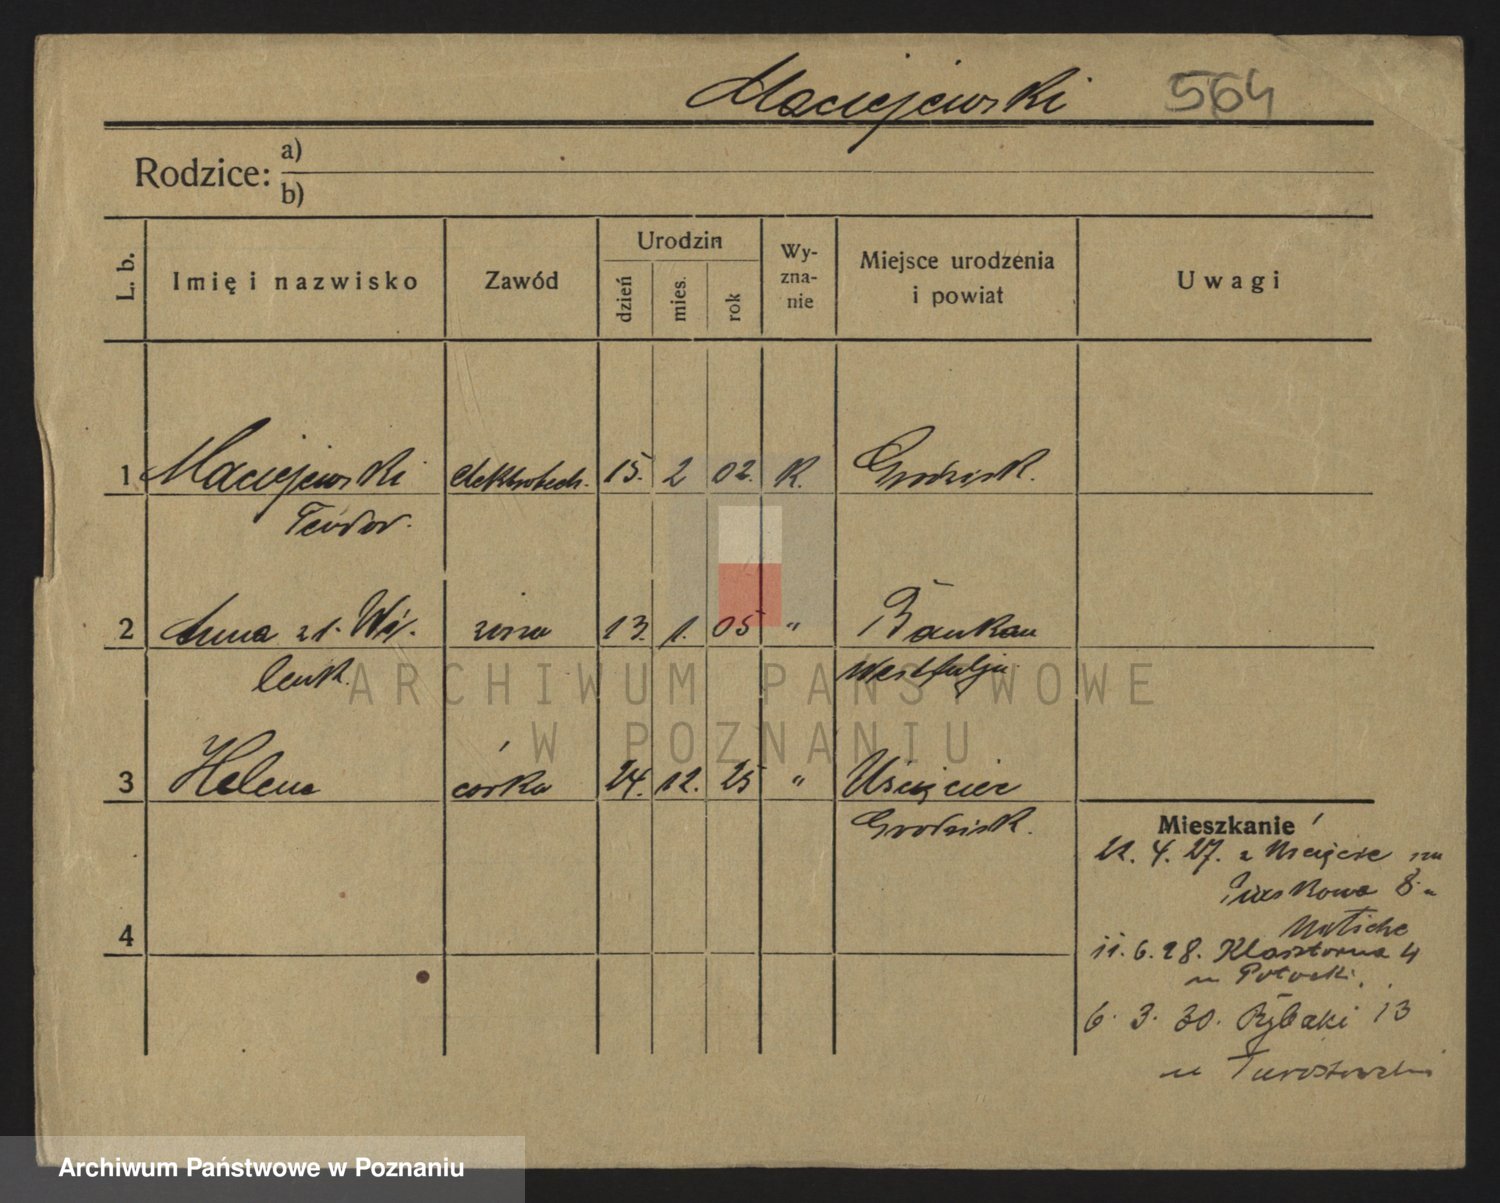 Maciejewski 564
Rodzice: a)
b)
L. b. Imię i nazwisko Zawód Urodzin dzień mies. rok Wy-zna-nie Miejsce urodzenia i powiat Uwagi
1 Maciejewski elektrotech. 15. 2 02. K. Grodzisk.
Teodor.
2 Anna z d. Wi-zona 13. 1. 05 " Baukau
lenk. Westfalja
ARCHIWUM PAŃSTWOWE
W POZNANIU
3 Helena córka 24. 12. 25 " Uścięcice
Grodzisk.
Mieszkanie
22. 4. 27. z Uścięcic na
Piaskowa 8
4
11. 6. 28. Klasztorna 4
u Potocki.
6. 3. 30. Rybaki 13
u
Archiwum Państwowe w Poznaniu